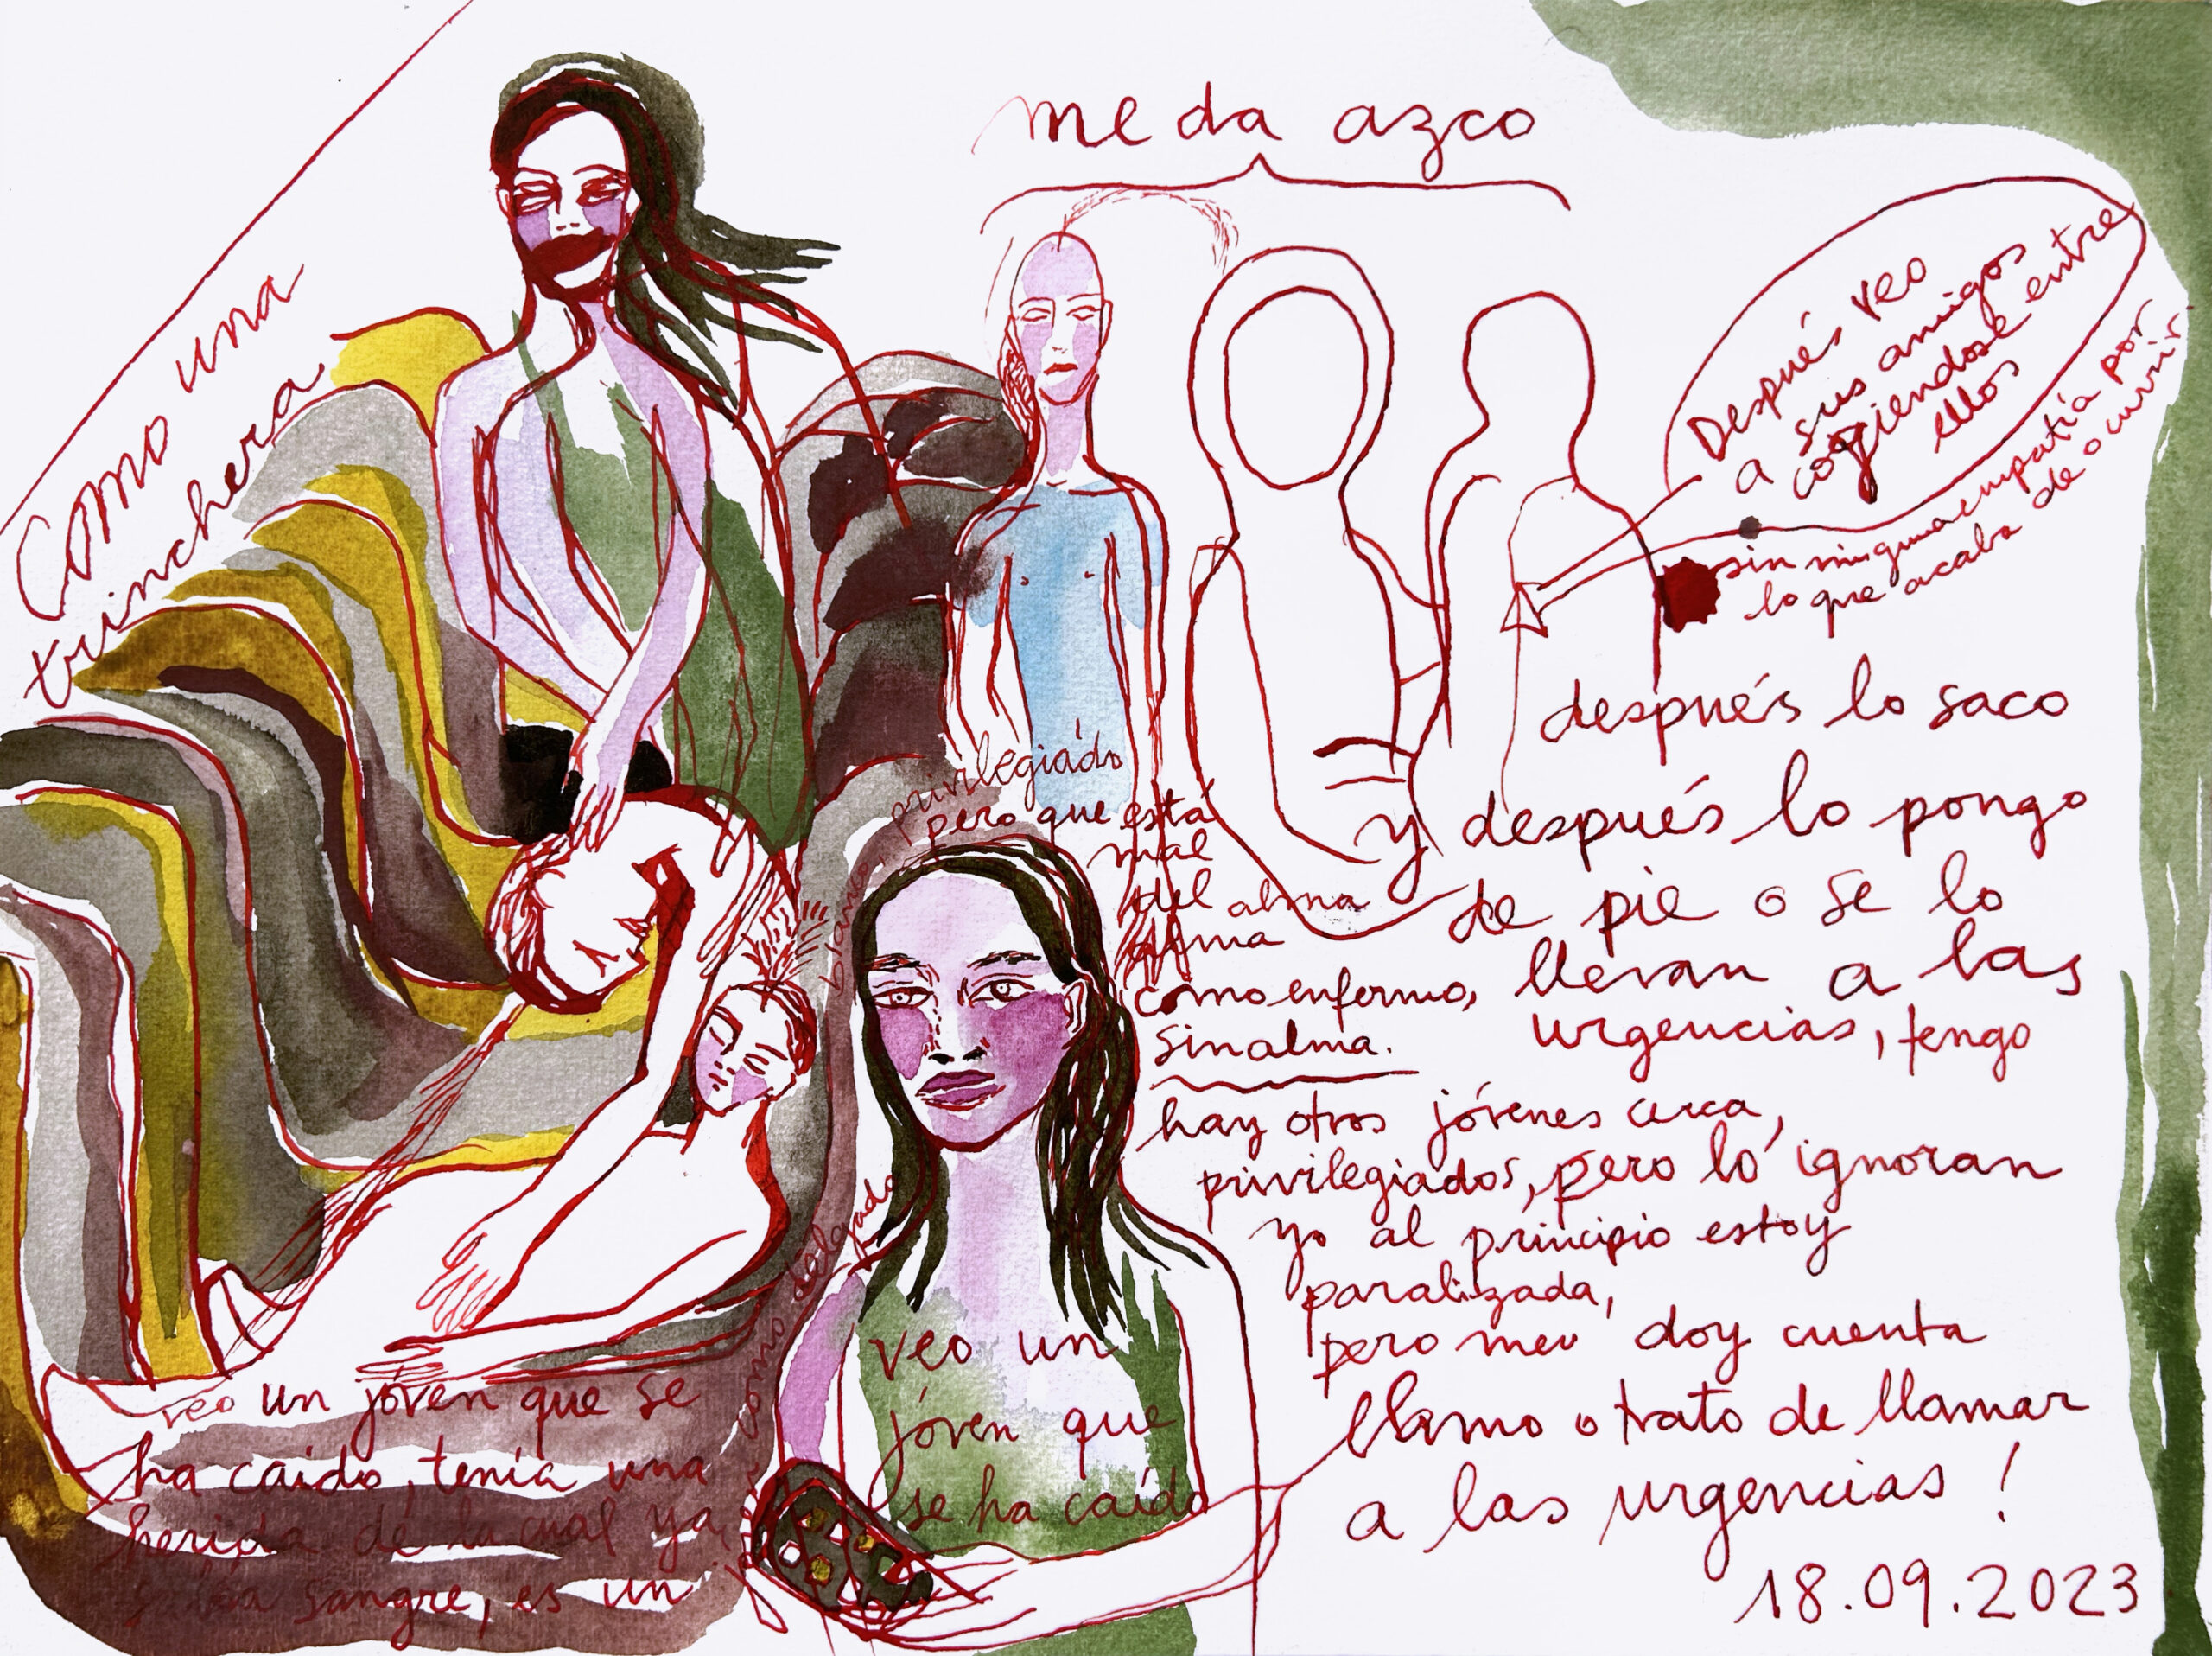 como una
trinchera
me da azco
Después veo
a sus amigos
cogiendose entre
ellos
sin ninguna empatía por
lo que acaba de ocurrir.
veo un jóven que se
ha caido, tenía una
herida de la cual ya
salía sangre, es un
como delgado
blanco, privilegiado
pero que está
mal
del alma
alma
como enfermo,
sin alma.
veo un
jóven que
se ha caído
hay otros jóvenes cerca,
privilegiados, pero lo ignoran
yo al principio estoy
paralizada,
pero me doy cuenta
llamo o trato de llamar
a las urgencias!
después lo saco
y después lo pongo
de pie o se lo
llevan a las
urgencias, tengo
18.09.2023